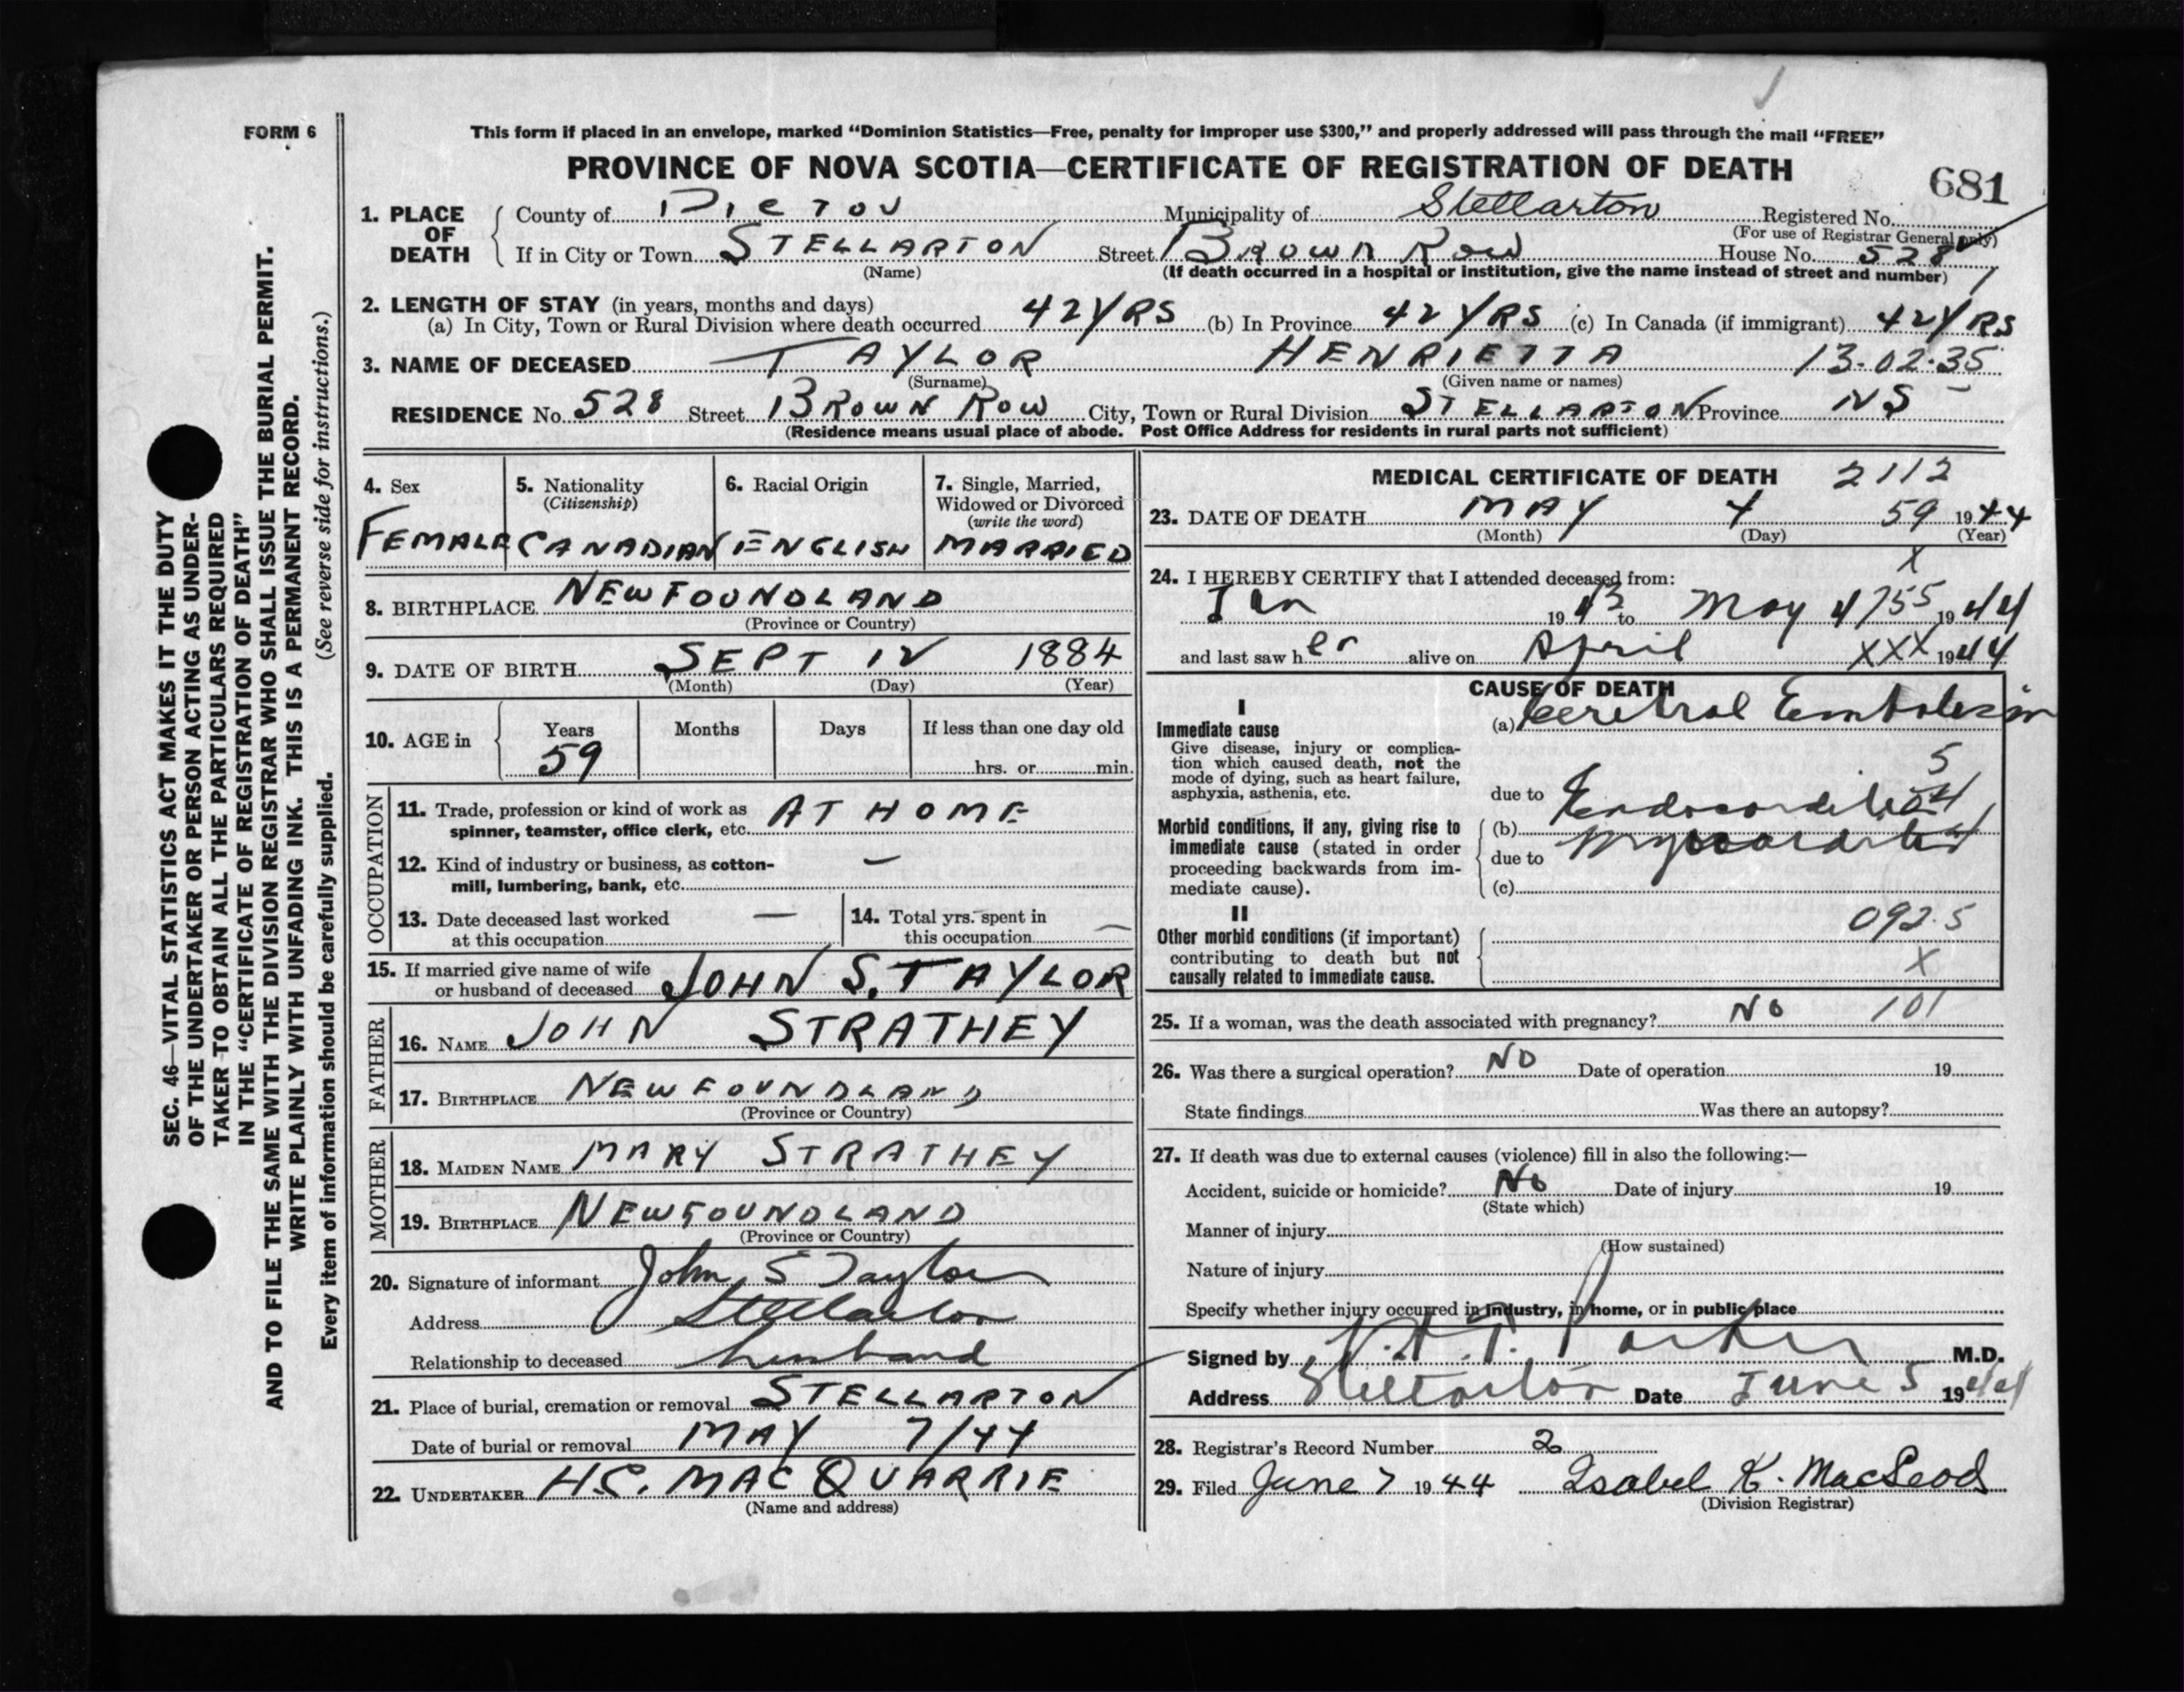 FORM 6
This form if placed in an envelope, marked "Dominion Statistics—Free, penalty for improper use $300," and properly addressed will pass through the mail "FREE"
PROVINCE OF NOVA SCOTIA—CERTIFICATE OF REGISTRATION OF DEATH
681
SEC. 46—VITAL STATISTICS ACT MAKES IT THE DUTY
OF THE UNDERTAKER OR PERSON ACTING AS UNDER-
TAKER TO OBTAIN ALL THE PARTICULARS REQUIRED
IN THE "CERTIFICATE OF REGISTRATION OF DEATH"
AND TO FILE THE SAME WITH THE DIVISION REGISTRAR WHO SHALL ISSUE THE BURIAL PERMIT.
WRITE PLAINLY WITH UNFADING INK. THIS IS A PERMANENT RECORD.
Every item of information should be carefully supplied. (See reverse side for instructions.)
1. PLACE OF DEATH County of PICTOU Municipality of Stellarton Registered No.
(For use of Registrar General only)
If in City or Town STELLARTON Street BROWN ROW House No. 528
(Name) (If death occurred in a hospital or institution, give the name instead of street and number)
2. LENGTH OF STAY (in years, months and days)
(a) In City, Town or Rural Division where death occurred 42 YRS (b) In Province 42 YRS (c) In Canada (if immigrant) 42 YRS
3. NAME OF DECEASED TAYLOR HENRIETTA 13-02-35
(Surname) (Given name or names)
RESIDENCE No. 528 Street BROWN ROW City, Town or Rural Division STELLARTON Province NS
(Residence means usual place of abode. Post Office Address for residents in rural parts not sufficient)
4. Sex
FEMALE
5. Nationality
(Citizenship)
CANADIAN
6. Racial Origin
ENGLISH
7. Single, Married,
Widowed or Divorced
(write the word)
MARRIED
8. BIRTHPLACE NEWFOUNDLAND
(Province or Country)
9. DATE OF BIRTH SEPT 12 1884
(Month) (Day) (Year)
10. AGE in Years Months Days If less than one day old
59 hrs. or min.
OCCUPATION
11. Trade, profession or kind of work as
spinner, teamster, office clerk, etc. AT HOME
12. Kind of industry or business, as cotton-
mill, lumbering, bank, etc. —
13. Date deceased last worked
at this occupation —
14. Total yrs. spent in
this occupation —
15. If married give name of wife
or husband of deceased JOHN S. TAYLOR
FATHER
16. NAME JOHN STRATHEY
17. BIRTHPLACE NEWFOUNDLAND
(Province or Country)
MOTHER
18. MAIDEN NAME MARY STRATHEY
19. BIRTHPLACE NEWFOUNDLAND
(Province or Country)
20. Signature of informant John S Taylor
Address Stellarton
Relationship to deceased husband
21. Place of burial, cremation or removal STELLARTON
Date of burial or removal MAY 7/44
22. UNDERTAKER H.C. MACQUARRIE
(Name and address)
MEDICAL CERTIFICATE OF DEATH 2112
23. DATE OF DEATH MAY 4 59 1944
(Month) (Day) (Year)
X
24. I HEREBY CERTIFY that I attended deceased from:
Jan 1943 to May 4 755 1944
and last saw her alive on April XXX 1944
CAUSE OF DEATH
I
Immediate cause
Give disease, injury or complica-
tion which caused death, not the
mode of dying, such as heart failure,
asphyxia, asthenia, etc.
(a) Cerebral Embolism
5
due to
Morbid conditions, if any, giving rise to
immediate cause (stated in order
proceeding backwards from im-
mediate cause).
(b) Endocarditis
due to Myocarditis
(c)
II
Other morbid conditions (if important)
contributing to death but not
causally related to immediate cause.
092.5
X
25. If a woman, was the death associated with pregnancy? NO 101
26. Was there a surgical operation? NO Date of operation 19
State findings Was there an autopsy?
27. If death was due to external causes (violence) fill in also the following:—
Accident, suicide or homicide? No Date of injury 19
(State which)
Manner of injury
(How sustained)
Nature of injury
Specify whether injury occurred in industry, in home, or in public place
Signed by Parker M.D.
Address Stellarton Date June 5 1944
28. Registrar's Record Number 2
29. Filed June 7 1944 Isabel K. MacLeod
(Division Registrar)